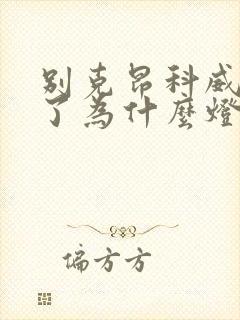 别克昂科威
了為什麼燈
偏方方